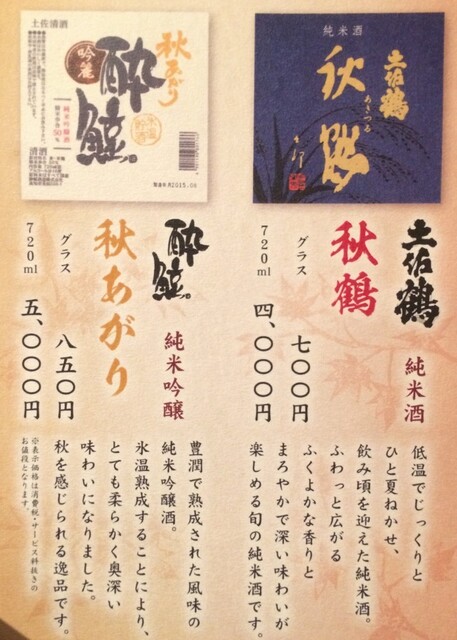 純米酒
土佐鶴
秋鶴
あきつる
土佐清酒
秋あがり
酔鯨
吟麗
純米吟醸酒
精米歩合50%
氷温貯蔵
清酒
製造年月2015.08
土佐鶴 純米酒
秋鶴
グラス 七〇〇円
720ml 四、〇〇〇円
低温でじっくりと
ひと夏ねかせ、
飲み頃を迎えた純米酒。
ふわっと広がる
ふくよかな香りと
まろやかで深い味わいが
楽しめる旬の純米酒です。
酔鯨。 純米吟醸
秋あがり
グラス 八五〇円
720ml 五、〇〇〇円
豊潤で熟成された風味の
純米吟醸酒。
氷温熟成することにより、
とても柔らかく奥深い
味わいになりました。
秋を感じられる逸品です。
※表示価格は消費税・サービス料抜きの
お値段となります。